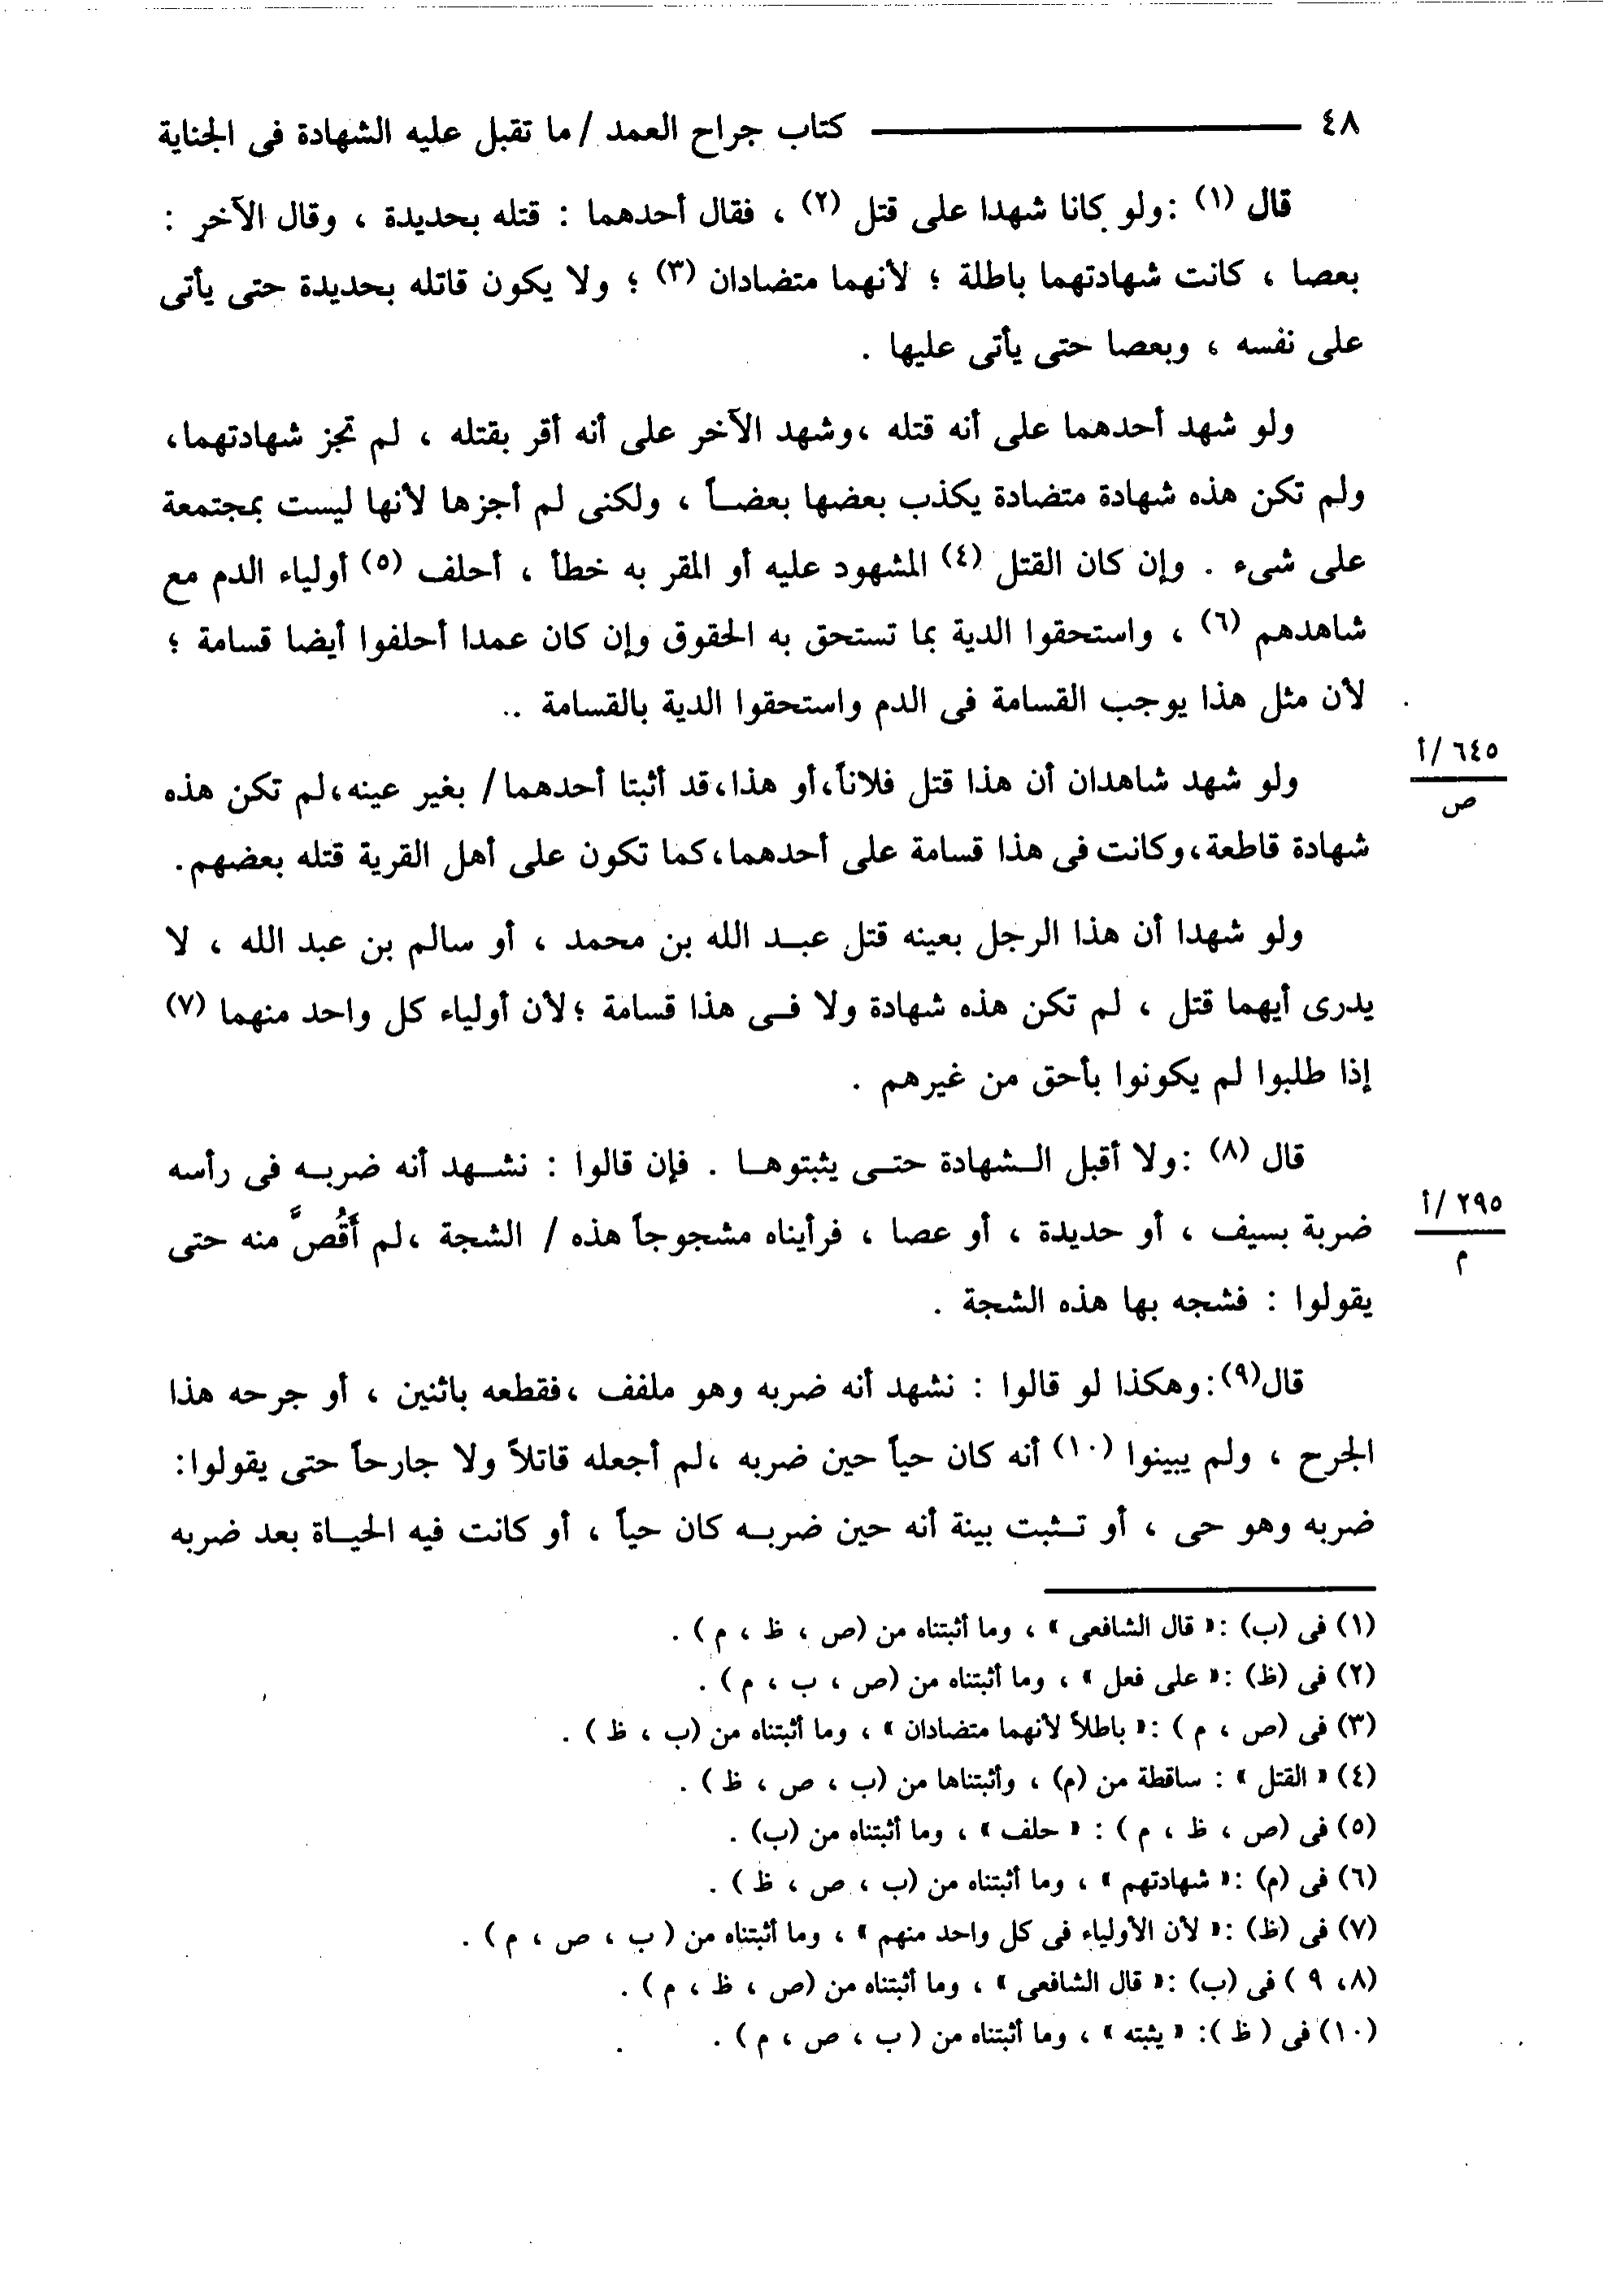 ٤٨ ــــــــ كتاب جراح العمد / ما تقبل عليه الشهادة فى الجناية
قال (١) :ولو كانا شهدا على قتل (٢) ، فقال أحدهما : قتله بحديدة ، وقال الآخر :
بعصا ، كانت شهادتهما باطلة ؛ لأنهما متضادان (٣) ؛ ولا يكون قاتله بحديدة حتى يأتى
على نفسه ، وبعصا حتى يأتى عليها .
ولو شهد أحدهما على أنه قتله ،وشهد الآخر على أنه أقر بقتله ، لم تجز شهادتهما،
ولم تكن هذه شهادة متضادة يكذب بعضها بعضـاً ، ولكنى لم أجزها لأنها ليست بمجتمعة
على شىء . وإن كان القتل (٤) المشهود عليه أو المقر به خطأ ، أحلف (٥) أولياء الدم مع
شاهدهم (٦) ، واستحقوا الدية بما تستحق به الحقوق وإن كان عمدا أحلفوا أيضا قسامة ؛
لأن مثل هذا يوجب القسامة فى الدم واستحقوا الدية بالقسامة ..
ولو شهد شاهدان أن هذا قتل فلاناً،أو هذا،قد أثبتا أحدهما/ بغير عينه،لم تكن هذه
٦٤٥ /أ
ص
شهادة قاطعة،وكانت فى هذا قسامة على أحدهما،كما تكون على أهل القرية قتله بعضهم.
ولو شهدا أن هذا الرجل بعينه قتل عبـد الله بن محمد ، أو سالم بن عبد الله ، لا
يدرى أيهما قتل ، لم تكن هذه شهادة ولا فـى هذا قسامة ؛لأن أولياء كل واحد منهما (٧)
إذا طلبوا لم يكونوا بأحق من غيرهم .
قال (٨) :ولا أقبل الـشهادة حتـى يثبتوهـا . فإن قالوا : نشـهد أنه ضربـه فى رأسه
ضربة بسيف ، أو حديدة ، أو عصا ، فرأيناه مشجوجاً هذه / الشجة ،لم أَقُصَّ منه حتى
٢٩٥ /أ
م
يقولوا : فشجه بها هذه الشجة .
قال(٩):وهكذا لو قالوا : نشهد أنه ضربه وهو ملفف ،فقطعه باثنين ، أو جرحه هذا
الجرح ، ولم يبينوا (١٠) أنه كان حياً حين ضربه ،لم أجعله قاتلاً ولا جارحاً حتى يقولوا:
ضربه وهو حى ، أو تـثبت بينة أنه حين ضربـه كان حياً ، أو كانت فيه الحيـاة بعد ضربه
(١) فى (ب) :« قال الشافعى » ، وما أثبتناه من (ص ، ظ ، م ) .
(٢) فى (ظ) :« على فعل » ، وما أثبتناه من (ص ، ب ، م ) .
(٣) فى (ص ، م ) :« باطلاً لأنهما متضادان » ، وما أثبتناه من (ب ، ظ ) .
(٤) « القتل » : ساقطة من (م) ، وأثبتناها من (ب ، ص ، ظ ) .
(٥) فى (ص ، ظ ، م ) : « حلف » ، وما أثبتناه من (ب) .
(٦) فى (م) :« شهادتهم » ، وما أثبتناه من (ب ، ص ، ظ ) .
(٧) فى (ظ) :« لأن الأولياء فى كل واحد منهم » ، وما أثبتناه من ( ب ، ص ، م ) .
(٨، ٩ ) فى (ب) :« قال الشافعى » ، وما أثبتناه من (ص ، ظ ، م ) .
(١٠) فى ( ظ ): « يثبته » ، وما أثبتناه من ( ب ، ص ، م ) .